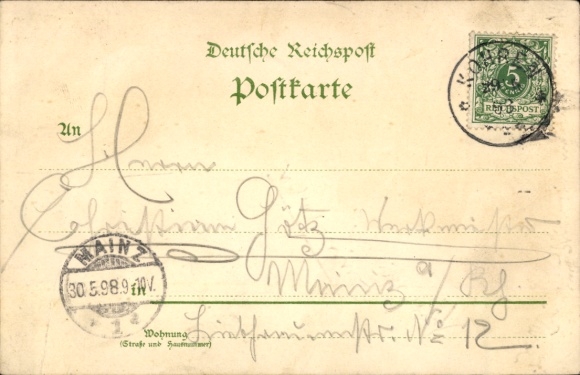 Deutsche Reichspost
Postkarte
KOHREN
5
REICHSPOST
An
Herrn
Christian Götz Werkmeister
Mainz a/Rh
MAINZ
30.5.98.9-10V.
1
in
Wohnung
(Straße und Hausnummer)
No 12.